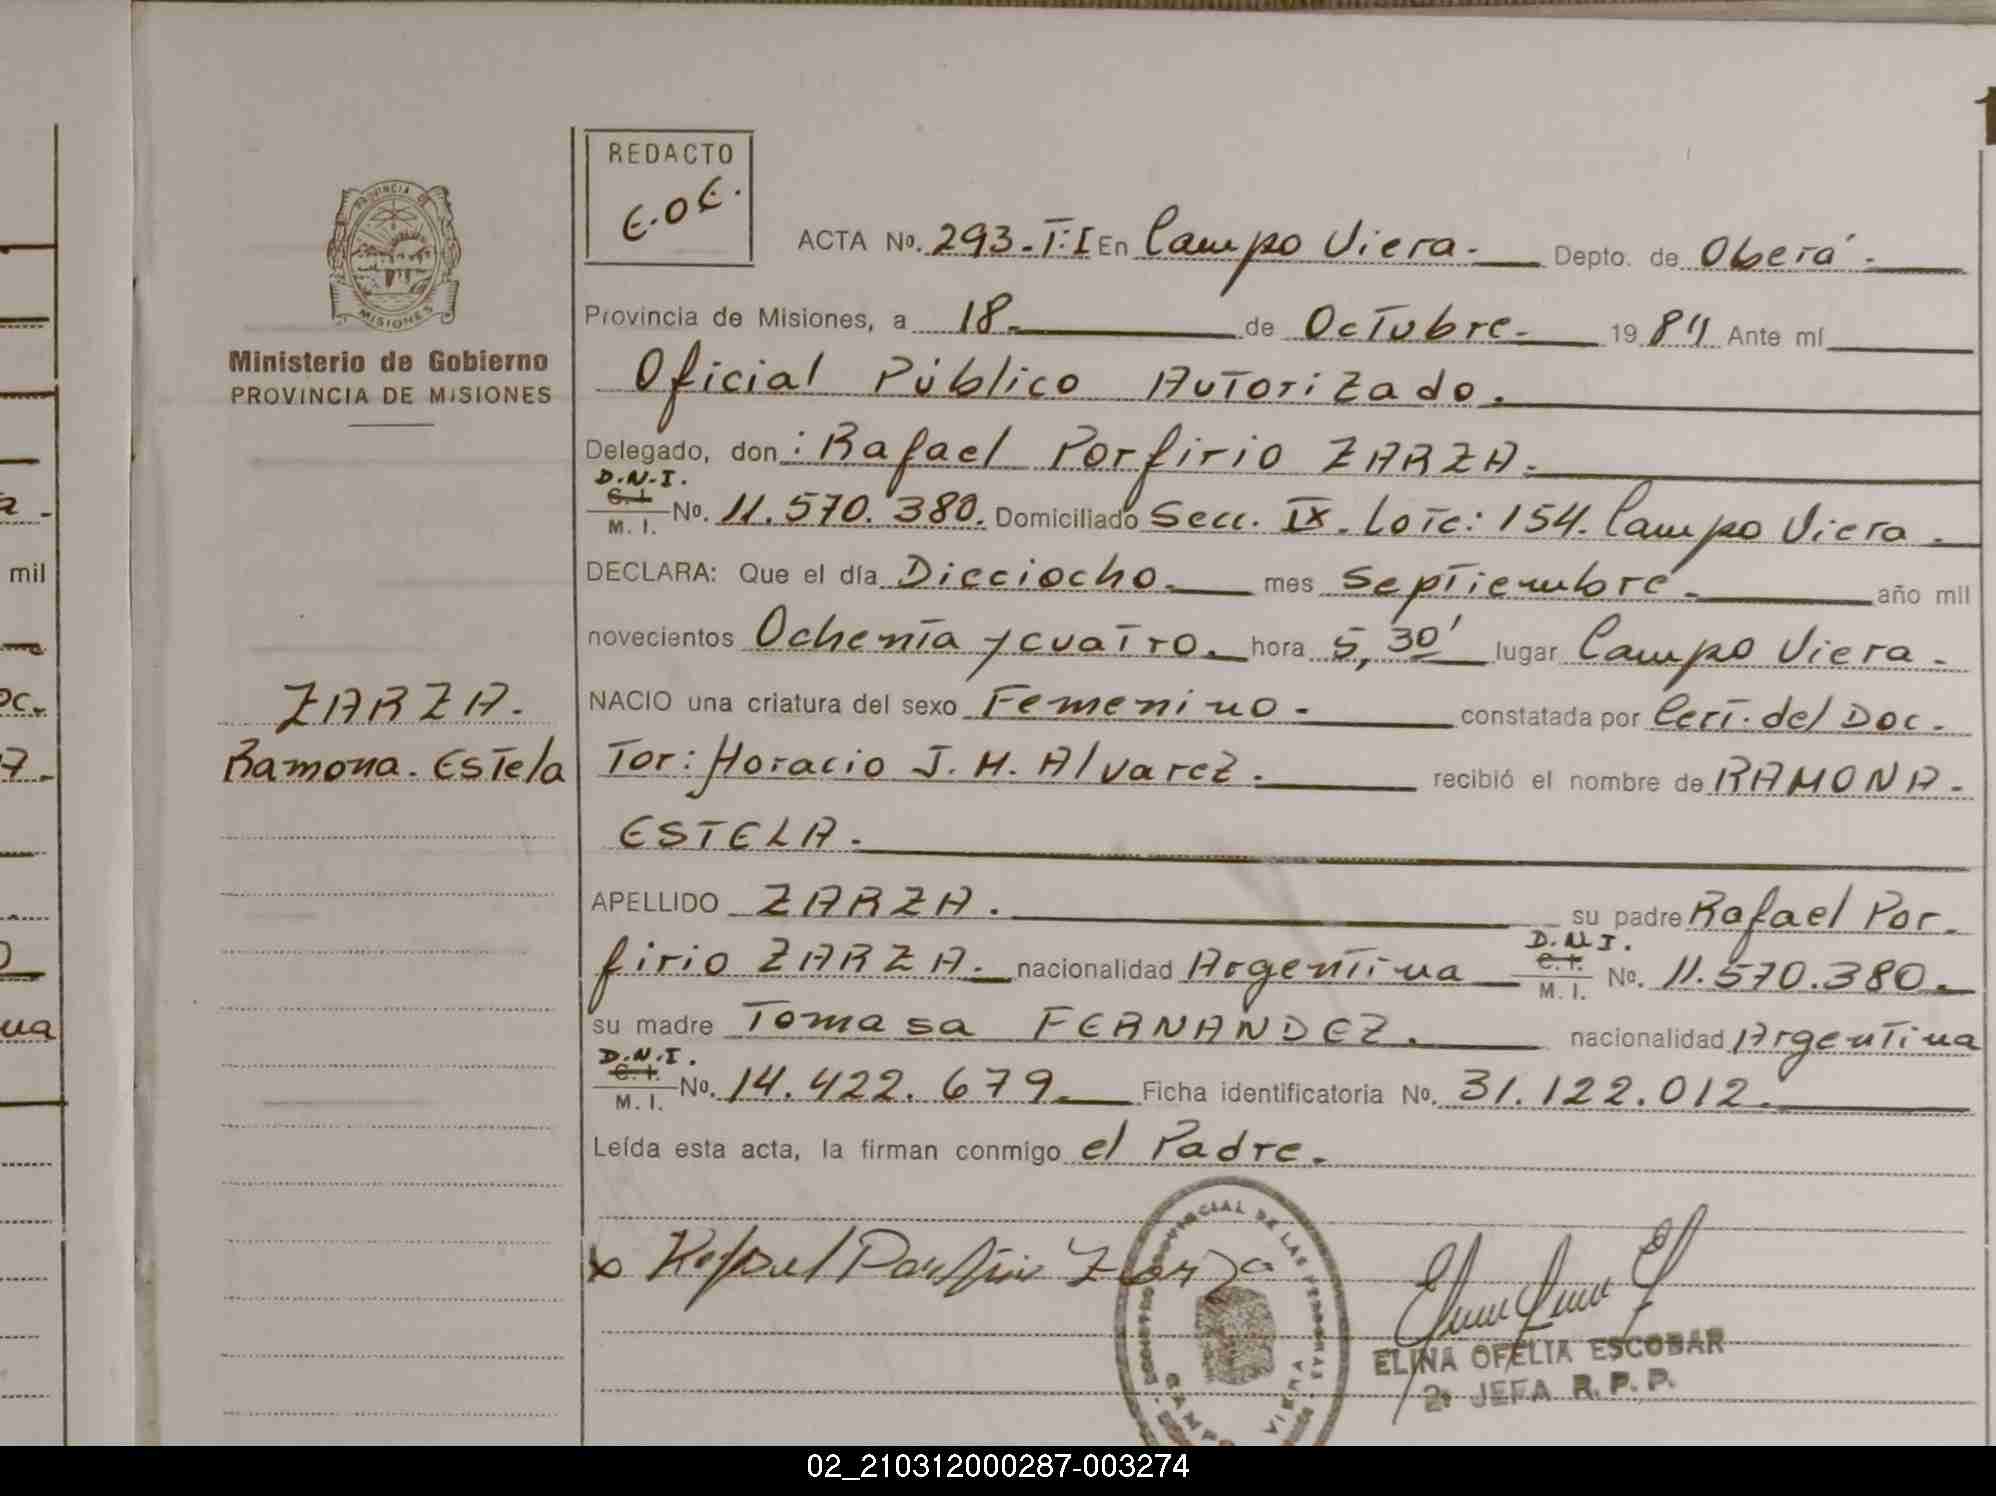 REDACTO
E.O.E.
PROVINCIA DE
MISIONES
Ministerio de Gobierno
PROVINCIA DE MISIONES
ACTA No. 293.-T:I En Campo Viera.- Depto. de Oberá.-
Provincia de Misiones, a 18.- de Octubre.- 1984 Ante mí
Oficial Público Autorizado.
Delegado, don: Rafael Porfirio ZARZA.-
D.N.I.
C. I.
M. I. No. 11.570.380. Domiciliado Secc. IX. Lote: 154. Campo Viera.-
DECLARA: Que el día Dieciocho.- mes Septiembre.- año mil
novecientos Ochenta y cuatro.- hora 5,30' lugar Campo Viera.-
NACIO una criatura del sexo Femenino.- constatada por Cert. del Doc-
tor: Horacio J. H. Alvarez.- recibió el nombre de RAMONA-
ESTELA.-
ZARZA.-
Ramona. Estela
APELLIDO ZARZA.- su padre Rafael Por-
firio ZARZA.- nacionalidad Argentina D.N.I.
C. I.
M. I. No. 11.570.380.-
su madre Tomasa FERNANDEZ.- nacionalidad Argentina
D.N.I.
C. I.
M. I. No. 14.422.679.- Ficha identificatoria No. 31.122.012.-
Leída esta acta, la firman conmigo el Padre.-
x Rafael Porfirio Zarza
PROVINCIAL DE LAS PERSONAS
CAMPO VIERA
ELINA OFELIA ESCOBAR
2a JEFA R.P.P.
mil
02_210312000287-003274